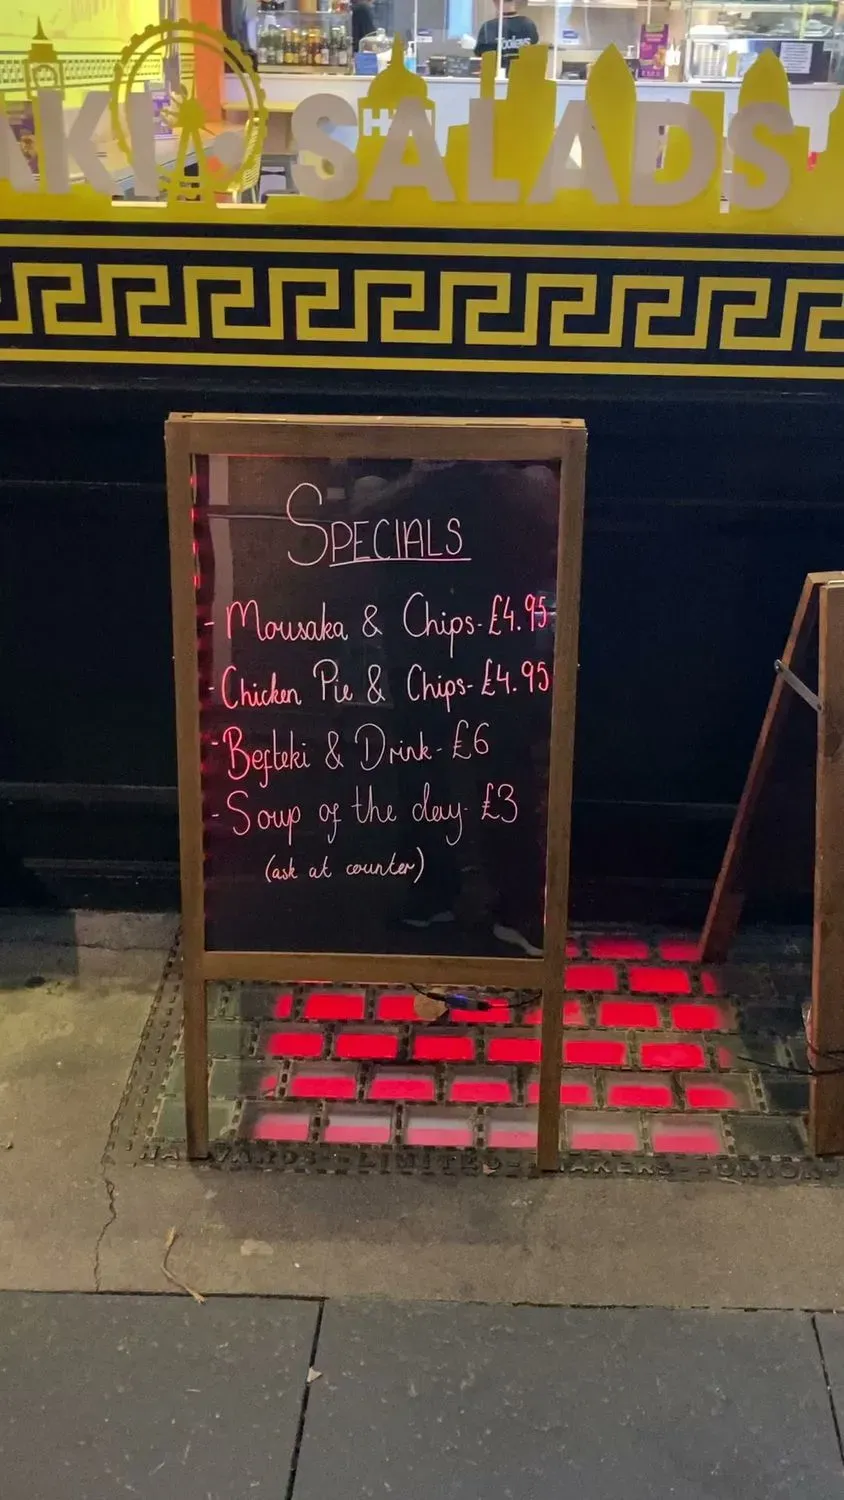 AKI • SALADS
SPECIALS
- Mousaka & Chips - £4.95
- Chicken Pie & Chips - £4.95
- Befteki & Drink - £6
- Soup of the day - £3
(ask at counter)
LIMITED